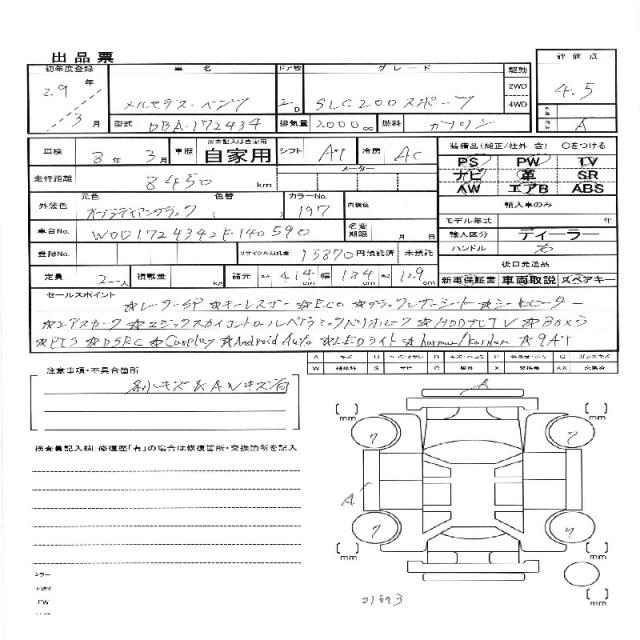 出品票
初年度登録 車名 ドア数 グレード 駆動 評価点
29年 メルセデス・ベンツ 2D SLC200スポーツ 2WD 4.5
3月 4WD
型式 DBA-172434 排気量 2000cc 燃料 ガソリン A
車検 8年3月 車歴 自家用 シフト AT 冷房 AC
装備品(純正/社外 含) ○をつける
PS PW TV
走行距離 8450km メーター
ナビ 革 SR
AW エアB ABS
外装色 元色 色替 カラーNo. 内装色
オブシディアンブラック ( ) 197
輸入車のみ
モデル年式 年
車台No. WDD1724342F140590 名変期限 月 日
輸入区分 ディーラー
登録No. リサイクル預託金 15870円 預託済 未預託
ハンドル 右
後日発送品
定員 2人 積載量 kg 諸元 長さ 414cm 幅 184cm 高さ 129cm
新車保証書 車両取説 スペアキー
セールスポイント ★レーダーSP ★キーレスゴー ★ECO ★ブラックレザーシート ★シートヒーター
★エアスカーフ ★マジックスカイコントロールパノラミックバリオルーフ ★HDDナビTV ★Bカメラ
★PTS ★DSRC ★Carplay ★Android Auto ★LEDライト ★harman/kardon ★9AT
A キズ U P G
W S C X 要交換 XX 交換済
注意事項・不具合箇所
小キズ&AWキズ有
A
検査員記入欄:修復歴「有」の場合は修復箇所・交換箇所を記入
mm mm
ワ ワ
A
ワ ワ
mm mm
mm
21693